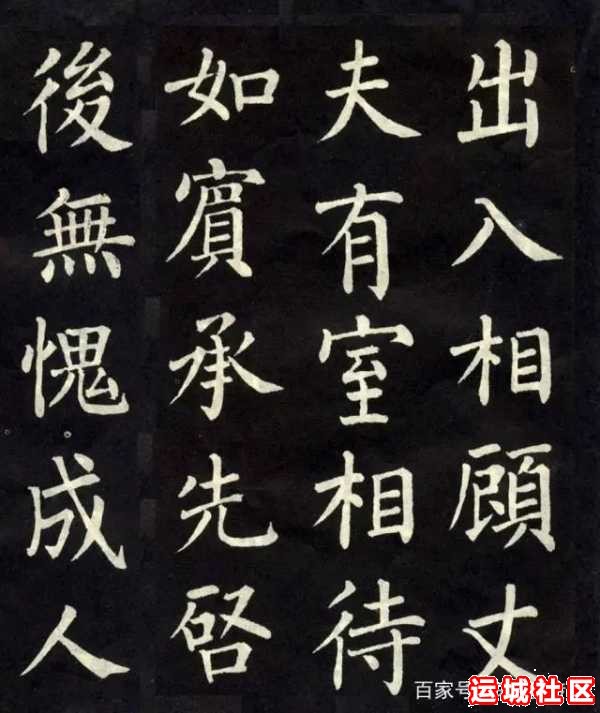 出入相顧丈
夫有室相待
如賓承先啓
後無愧成人
百家号
运城社区